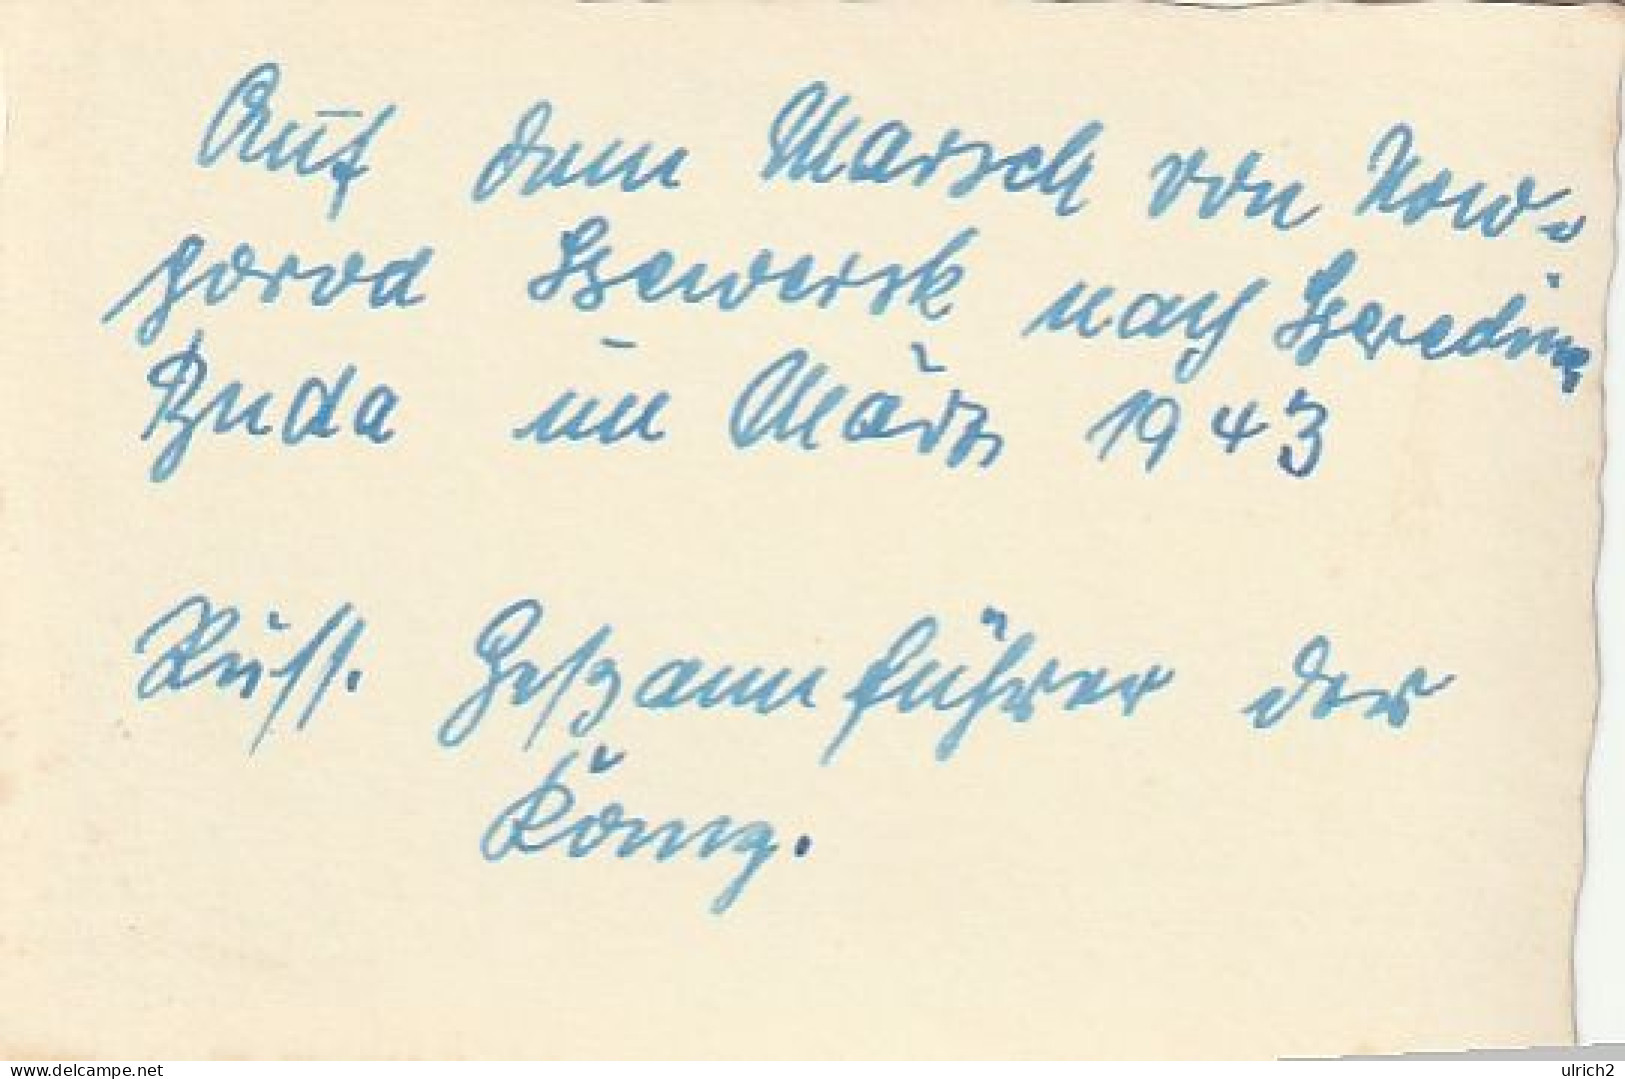 Auf dem Marsch von Now-
gorod Ssewersk nach Sseredina
Buda im März 1943
Russ. Gespannführer der
König.
www.delcampe.net
ulrich2